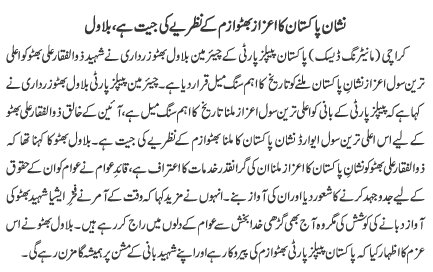 نشان پاکستان کا اعزاز بھٹوازم کے نظریے کی جیت ہے، بلاول
کراچی (مانیٹرنگ ڈیسک) پاکستان پیپلز پارٹی کے چیئرمین بلاول بھٹو زرداری نے شہید ذوالفقار علی بھٹو کو اعلی
ترین سول اعزاز نشان پاکستان ملنے کو تاریخ کا اہم سنگ میل قرار دیا ہے۔ چیئرمین پیپلز پارٹی بلاول بھٹو زرداری نے
کہا ہے کہ پیپلز پارٹی کے بانی کو اعلی ترین سول اعزاز ملنا تاریخ کا اہم سنگ میل ہے، آئین کے خالق ذوالفقار علی بھٹو
کے لیے اس اعلی ترین سول ایوارڈ نشان پاکستان کا ملنا بھٹوازم کے نظریے کی جیت ہے۔ بلاول بھٹو کا کہنا تھا کہ
ذوالفقار علی بھٹو کو نشان پاکستان کا اعزاز ملنا ان کی گرانقدر خدمات کا اعتراف ہے، قائد عوام نے عوام کو ان کے حقوق
کے لیے جدوجہد کرنے کا شعور دیا اور ان کی آواز بنے۔ انہوں نے مزید کہا کہ وقت کے آمر نے فخر ایشیا شہید بھٹو کی
آواز دبانے کی کوشش کی مگر وہ آج بھی گڑھی خدا بخش سے عوام کے دلوں میں راج کر رہے ہیں۔ بلاول بھٹو نے اس
عزم کا اظہار کیا کہ پاکستان پیپلز پارٹی بھٹوازم کی پیروکار ہے اور اپنے شہید بانی کے مشن پر ہمیشہ گامزن رہے گی۔